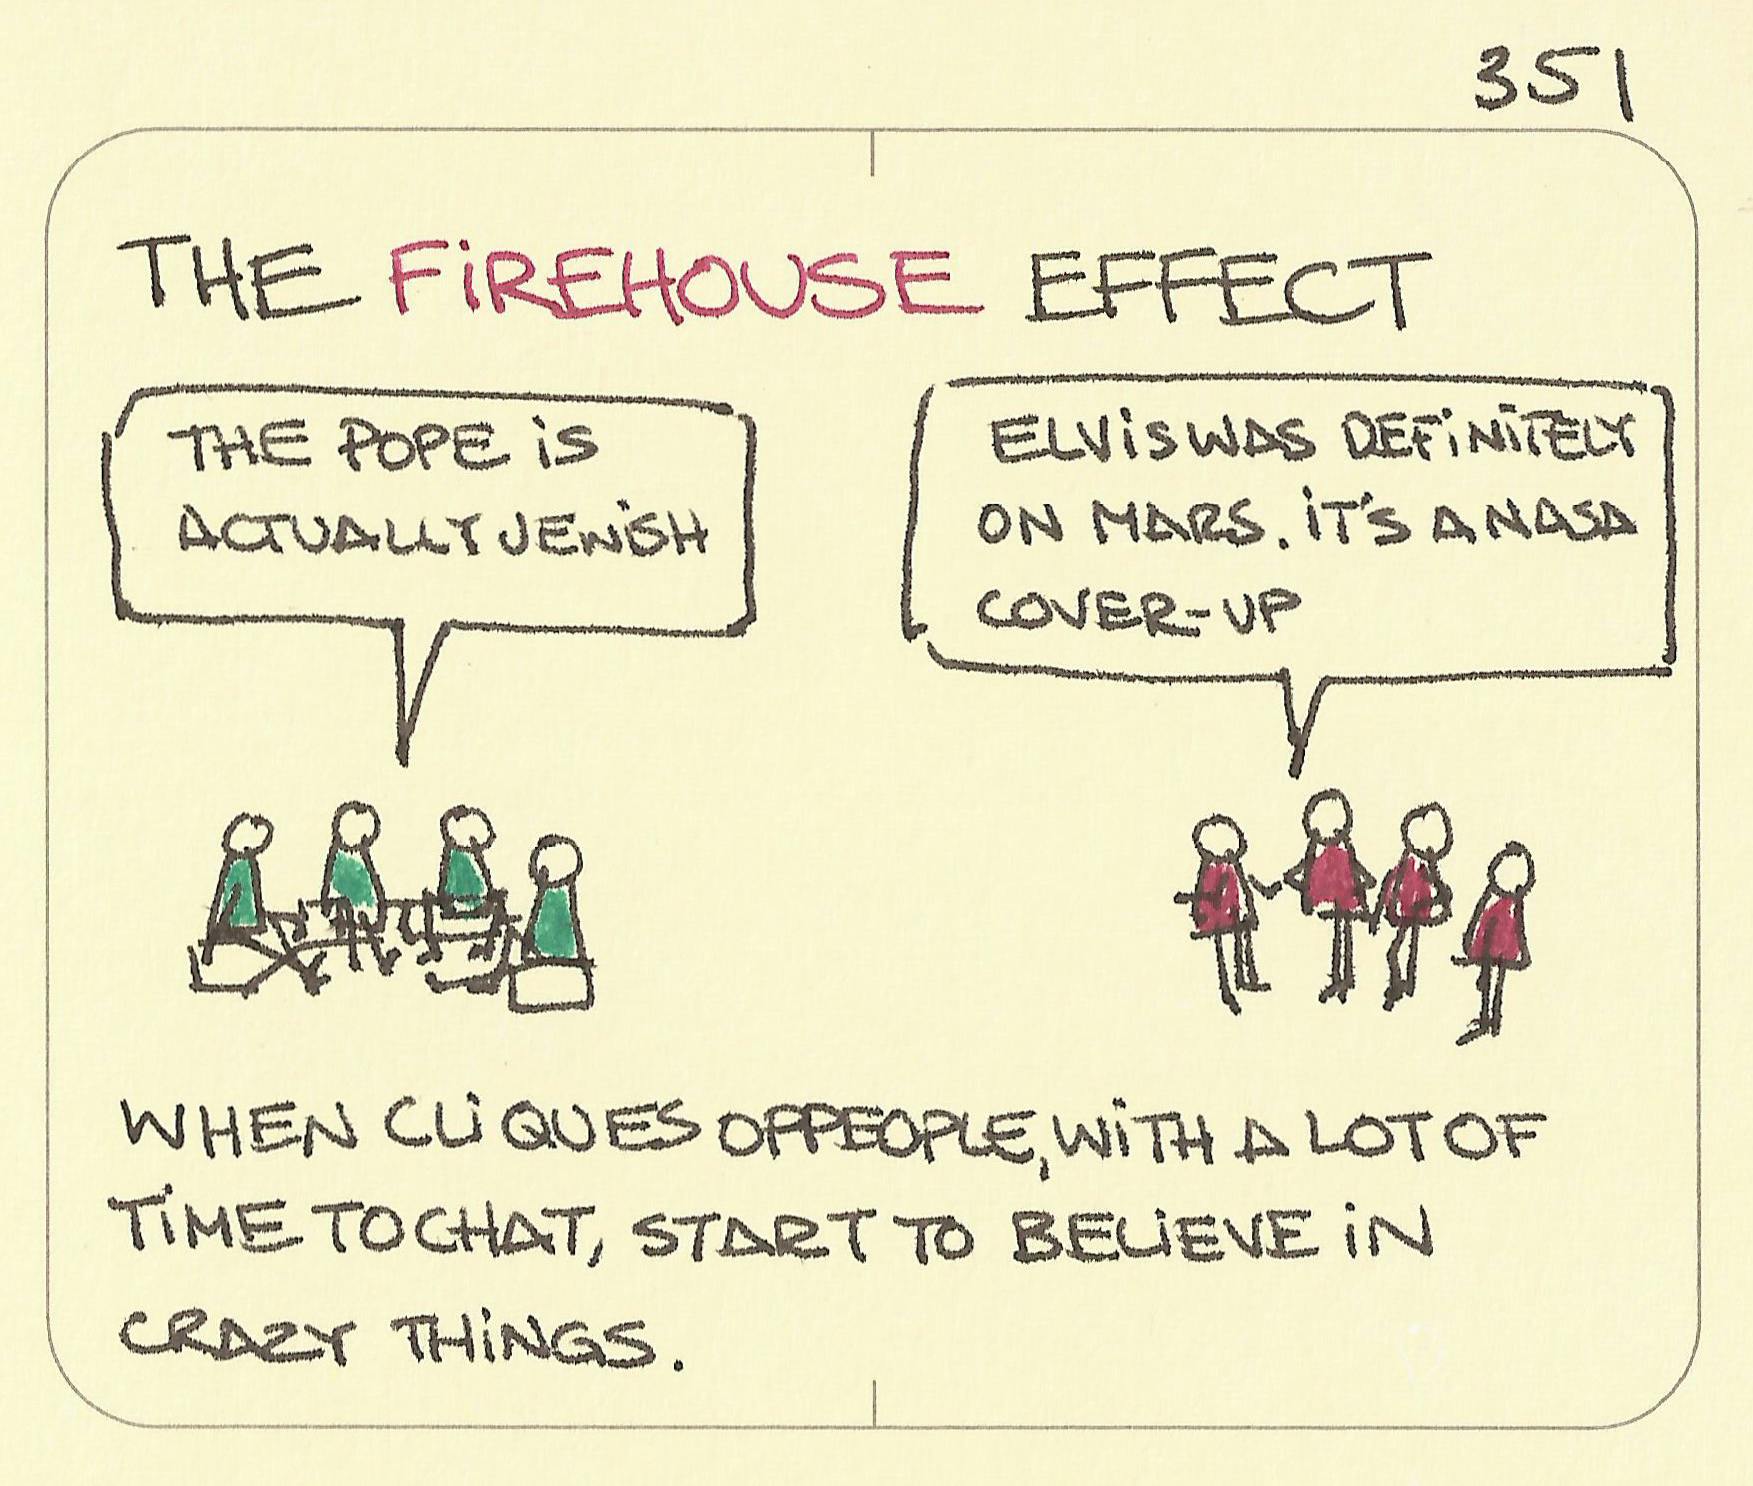 351
THE FIREHOUSE EFFECT
THE POPE IS
ACTUALLY JEWISH
ELVIS WAS DEFINITELY
ON MARS. IT'S A NASA
COVER-UP
WHEN CLIQUES OF PEOPLE, WITH A LOT OF
TIME TO CHAT, START TO BELIEVE IN
CRAZY THINGS.